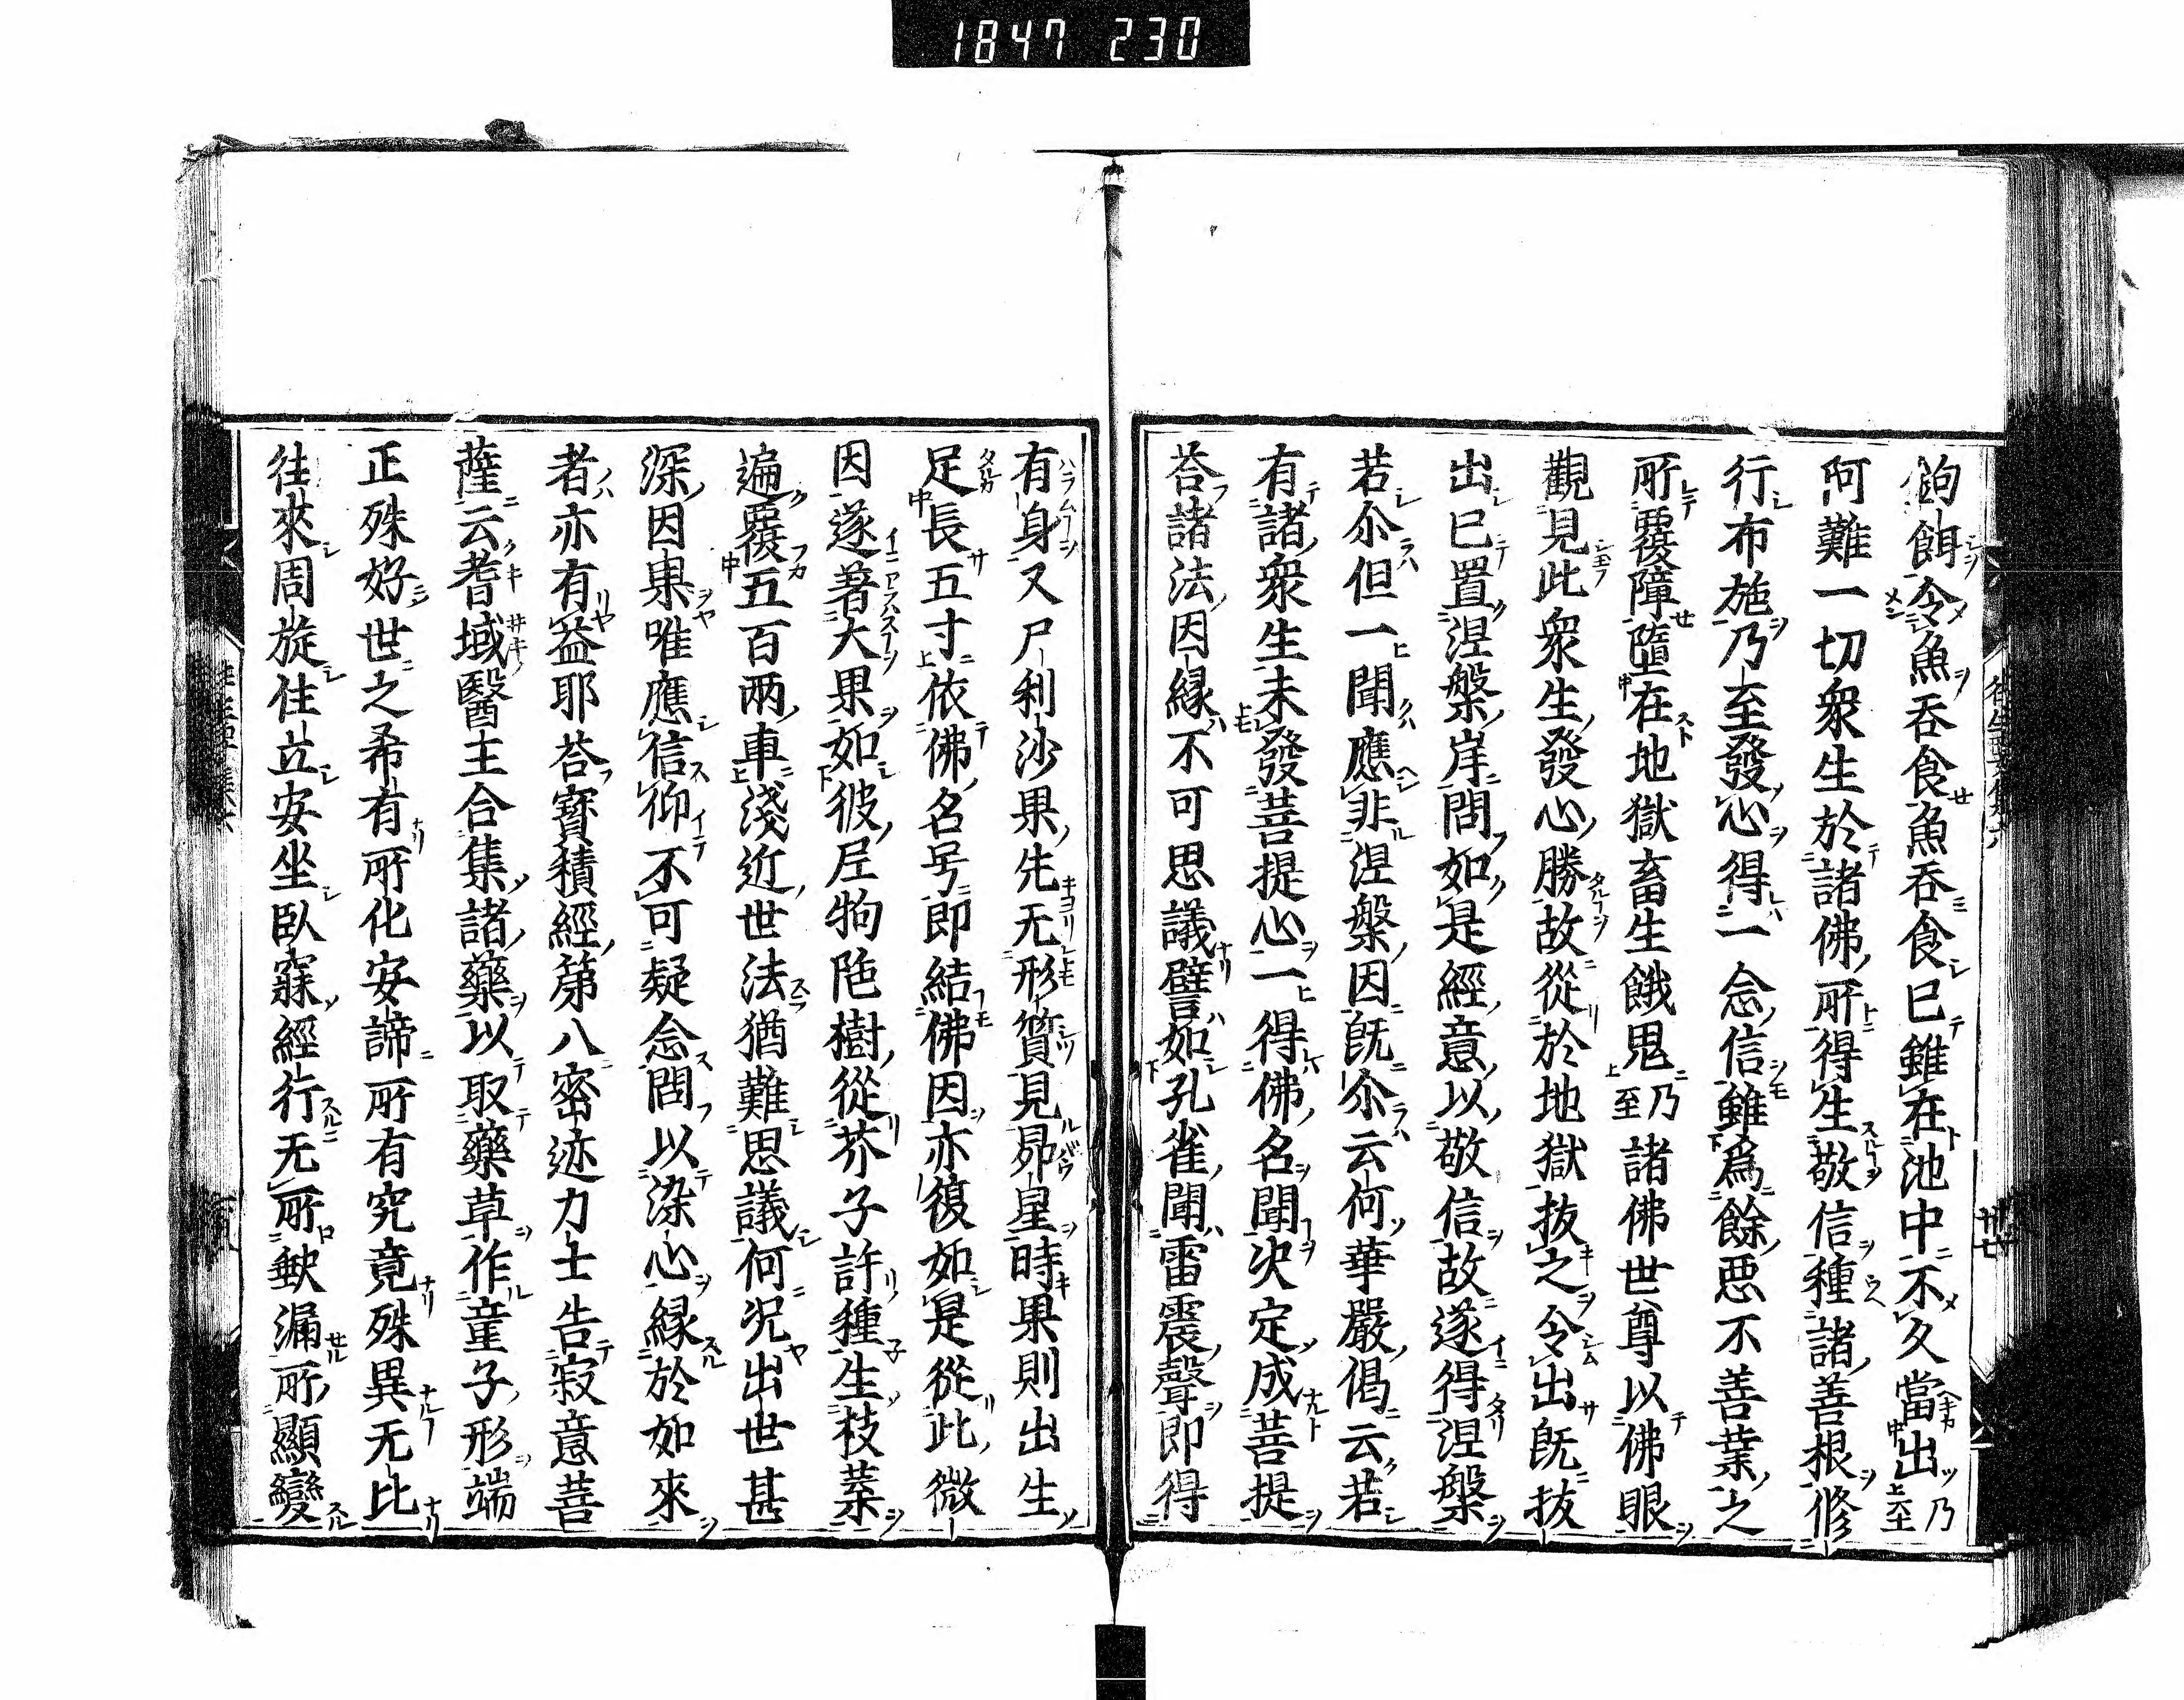 1847 230
鉤餌令魚吞食魚吞食已雖在池中不久當出乃至
阿難一切衆生於諸佛所得生敬信種諸善根修
行布施乃至發心得一念信雖爲餘惡不善業之
所覆障墮在地獄畜生餓鬼乃至諸佛世尊以佛眼
觀見此衆生發心勝故從於地獄拔之令出既拔
出已置涅槃岸問如是經意以敬信故遂得涅槃
若尒但一聞應非涅槃因既尒云何華嚴偈云若
有諸衆生未發菩提心一得聞佛名決定成菩提
荅諸法因緣不可思議譬如孔雀聞雷震聲即得
有身又尸利沙果先无形質見昴星時果則出生
足長五寸依佛名号即結佛因亦復如是從此微
因遂著大果如彼尼拘陁樹從芥子許種生枝葉
遍覆五百兩車淺近世法猶難思議何況出世甚
深因果唯應信仰不可疑念問以染心緣於如來
者亦有益耶荅寶積經第八密迹力士告寂意菩
薩云耆域醫王合集諸藥以取藥草作童子形端
正殊好世之希有所化安諦所有究竟殊異无比
徃來周旋住立安坐臥寐經行无所缺漏所顯變